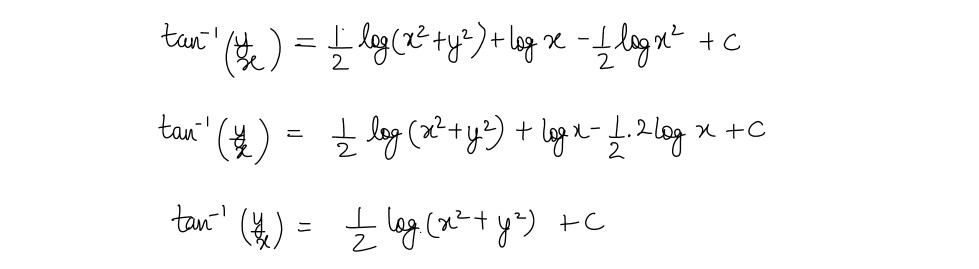 tan⁻¹(y/x) = 1/2 log(x²+y²)+log x - 1/2 log x² + c
tan⁻¹(y/x) = 1/2 log(x²+y²) + log x - 1/2 . 2 log x + c
tan⁻¹(y/x) = 1/2 log.(x²+ y²) + c